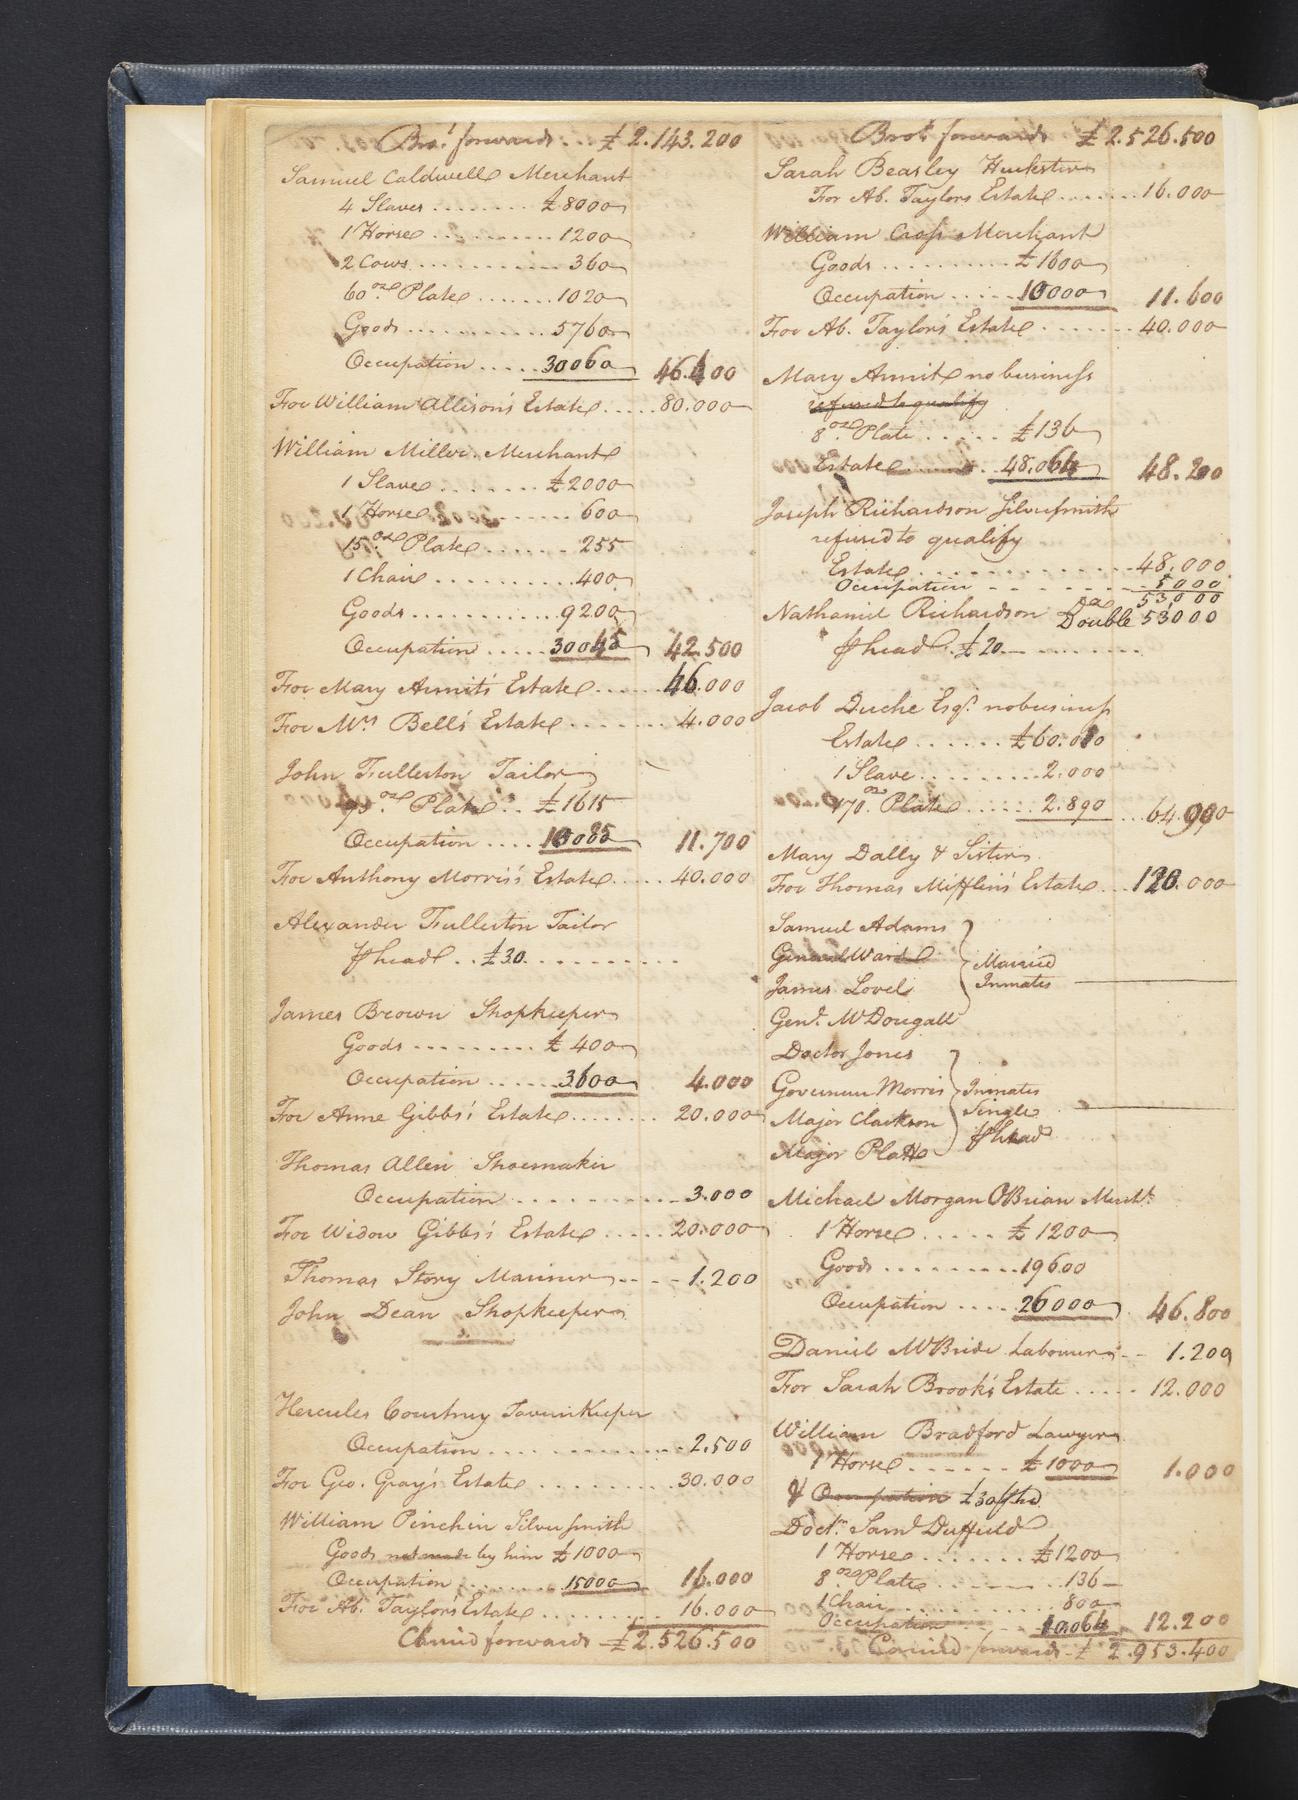 Bro.t forwards . . £ 2.143.200
Samuel Caldwell Merchant
4 Slaves . . . . . . . . £ 8000
1 Horse . . . . . . . . . . 1200
2 Cows . . . . . . . . . . . 360
60 oz Plate . . . . . . . 1020
Goods . . . . . . . . . . . 5760
Occupation . . . . . 30060 46.400
For William Allison's Estate . . . . . 80.000
William Miller Merchant
1 Slave . . . . . . . £ 2000
1 Horse . . . . . . . 600
15 oz Plate . . . . . . 255
1 Chair . . . . . . . . . . 400
Goods . . . . . . . . . . . 9200
Occupation . . . . . 30045 42.500
For Mary Armit's Estate . . . . . . 46.000
For Mrs Bell's Estate . . . . . . . 4.000
John Fullerton Tailor
95 oz Plate . . £ 1615
Occupation . . . . 10085 11.700
For Anthony Morris's Estate . . . . . 40.000
Alexander Fullerton Tailor
℔ head . . £30 . . . . . . . . . .
James Brown Shopkeeper
Goods . . . . . . . . . £ 400
Occupation . . . . . . 3600 4.000
For Anne Gibbs's Estate . . . . . . . 20.000
Thomas Allen Shoemaker
Occupation . . . . . . . . . . . 3.000
For Widow Gibbs's Estate . . . . . 20.000
Thomas Story Mariner - - - - 1.200
John Dean Shopkeeper
Hercules Courtney Tavernkeeper
Occupation . . . . . . . . . . . . . 2.500
For Geo. Gray's Estate . . . . . . . . . 30.000
William Pinchin Silver smith
Goods not made by him £ 1000
Occupation . . . . . . . 15000 16.000
For Ab. Taylor's Estate . . . . . . . . . 16.000
Carried forwards £ 2.526.500
Brot forwards £ 2.526.500
Sarah Beasley Huckster
For Ab. Taylors Estate . . . . . . . 16.000
William Cross Merchant
Goods . . . . . . . . . £ 1600
Occupation . . . . . 10000 11.600
For Ab. Taylor's Estate . . . . . . . 40.000
Mary Armit no business
refused to qualify
8 oz Plate . . . . . £ 136
Estate . . . . . . 48.064 48.200
Joseph Richardson Silversmith
refused to qualify
Estate . . . . . . . . . . . . . 48.000
Occupation - - - - - - 5000
53,000
Nathaniel Richardson Double 53,000
℔ head . £ 20 . . . . . . . . .
Jacob Duche Esqr. no business
Estate . . . . . . £ 60.010
1 Slave . . . . . . . . . 2.000
170 oz Plate . . . . . . 2.890 . . . 64.900
Mary Dally & Sister
For Thomas Mifflin's Estate . . . 120.000
Samuel Adams
General Ward
James Lovel
Married
Inmates
Genl. McDougall
Doctor Jones
Governeur Morris
Major Clarkson
Major Platt
Inmates
Single
℔ head
Michael Morgan O'Brian Mercht.
1 Horse . . . . . £ 1200
Goods . . . . . . . . . 19600
Occupation . . . . 26000 46.800
Daniel McBride Labourer - - 1.200
For Sarah Brook's Estate . . . . . 12.000
William Bradford Lawyer
1 Horse . . . . . . £ 1000 1.000
& Occupation £30 ℔ hd.
Doctr. Saml Duffield
1 Horse . . . . . . . £ 1200
8 oz Plate . . . . . . . . 136
1 Chair . . . . . . . . . . 800
Occupation . . . . . . . 10.064 12.200
Carried forwards - £ 2.953.400